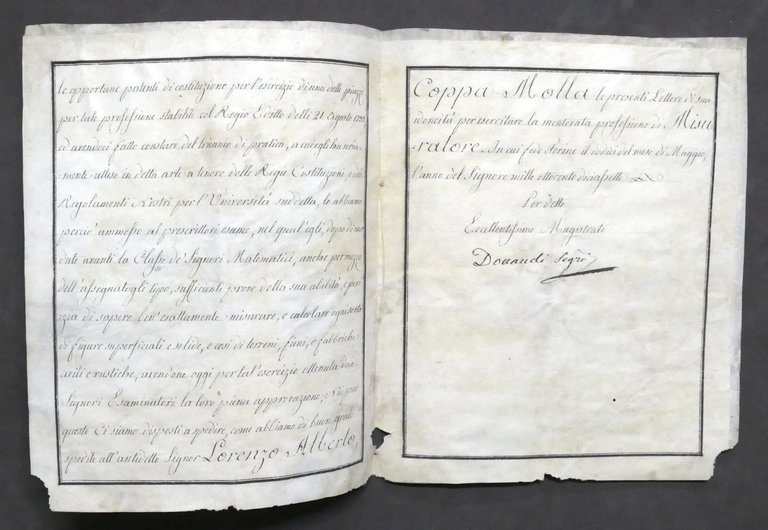 le opportune patenti di costituzione per l'esercizio di una delle piazze
per tale professione stabilite col Regio Editto delli 21 Agosto
ed avendoci fatto constare del triennio di pratica, a cui egli ha seria-
mente atteso in detta arte a tenore delle Regie Costituzioni, e dei
Regolamenti Nostri per l'Università suddetta, lo abbiamo
perciò ammesso al prescrittosi esame, nel qual'egli, dopo di aver
dato avanti la Classe de' Signori Matematici, anche per mezzo
dell'assegnatogli tipo, sufficienti prove della sua abilità, e peri-
zia di sapere ben'esattamente misurare, e calcolare ogni sorta
di figure superficiali e solide, e così di terreni, fieni, e fabbriche
civili e rustiche, avendone oggi per tal'esercizio ottenuta dai
Signori Esaminatori la loro piena approvazione; Noi per
questo Ci siamo disposti a spedire, come abbiamo di buon grado
spedite all'antidetto Signor Lorenzo Alberto
Coppa Molla le presenti Lettere di sua
idoneità per esercitare la mentovata professione di Misu-
ratore. In cui fede Torino il dodici del mese di Maggio,
l'anno del Signore mille ottocento diciassette
Per detto
Eccellentissimo Magistrato
Donaudi Segrio